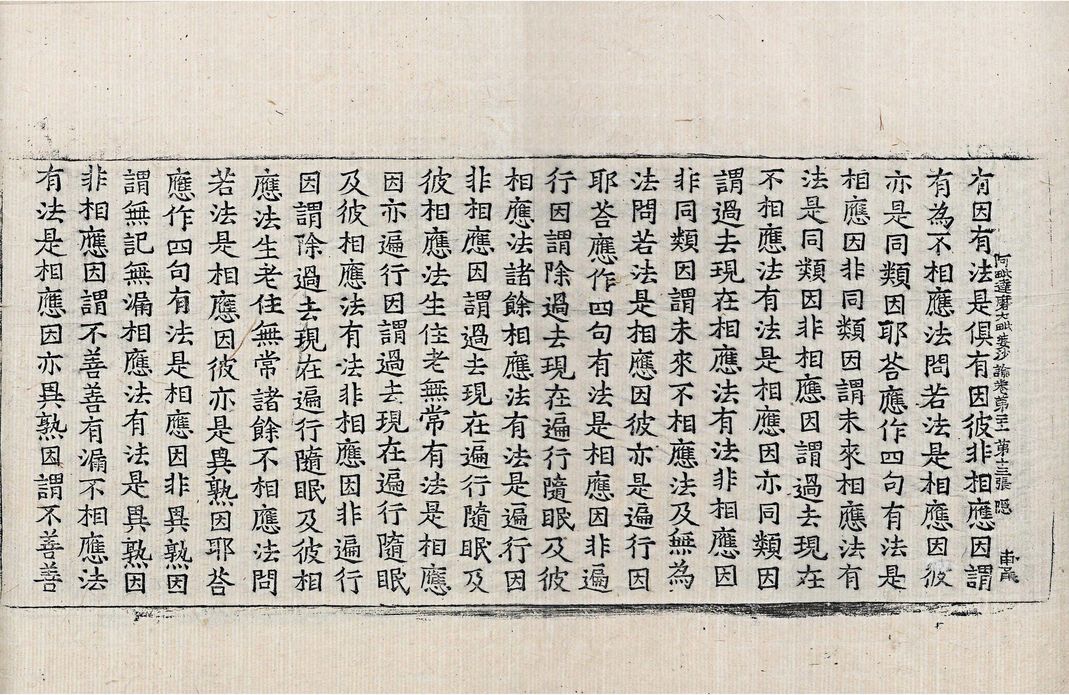 阿毗達磨大毗婆沙論卷第二十一 第十三張 隱
有因有法是俱有因彼非相應因謂
有為不相應法問若法是相應因彼
亦是同類因耶荅應作四句有法是
相應因非同類因謂未來相應法有
法是同類因非相應因謂過去現在
不相應法有法是相應因亦同類因
謂過去現在相應法有法非相應因
非同類因謂未來不相應法及無為
法問若法是相應因彼亦是遍行因
耶荅應作四句有法是相應因非遍
行因謂除過去現在遍行隨眠及彼
相應法諸餘相應法有法是遍行因
非相應因謂過去現在遍行隨眠及
彼相應法生住老無常有法是相應
因亦遍行因謂過去現在遍行隨眠
及彼相應法有法非相應因非遍行
因謂除過去現在遍行隨眠及彼相
應法生老住無常諸餘不相應法問
若法是相應因彼亦是異熟因耶荅
應作四句有法是相應因非異熟因
謂無記無漏相應法有法是異熟因
非相應因謂不善善有漏不相應法
有法是相應因亦異熟因謂不善善